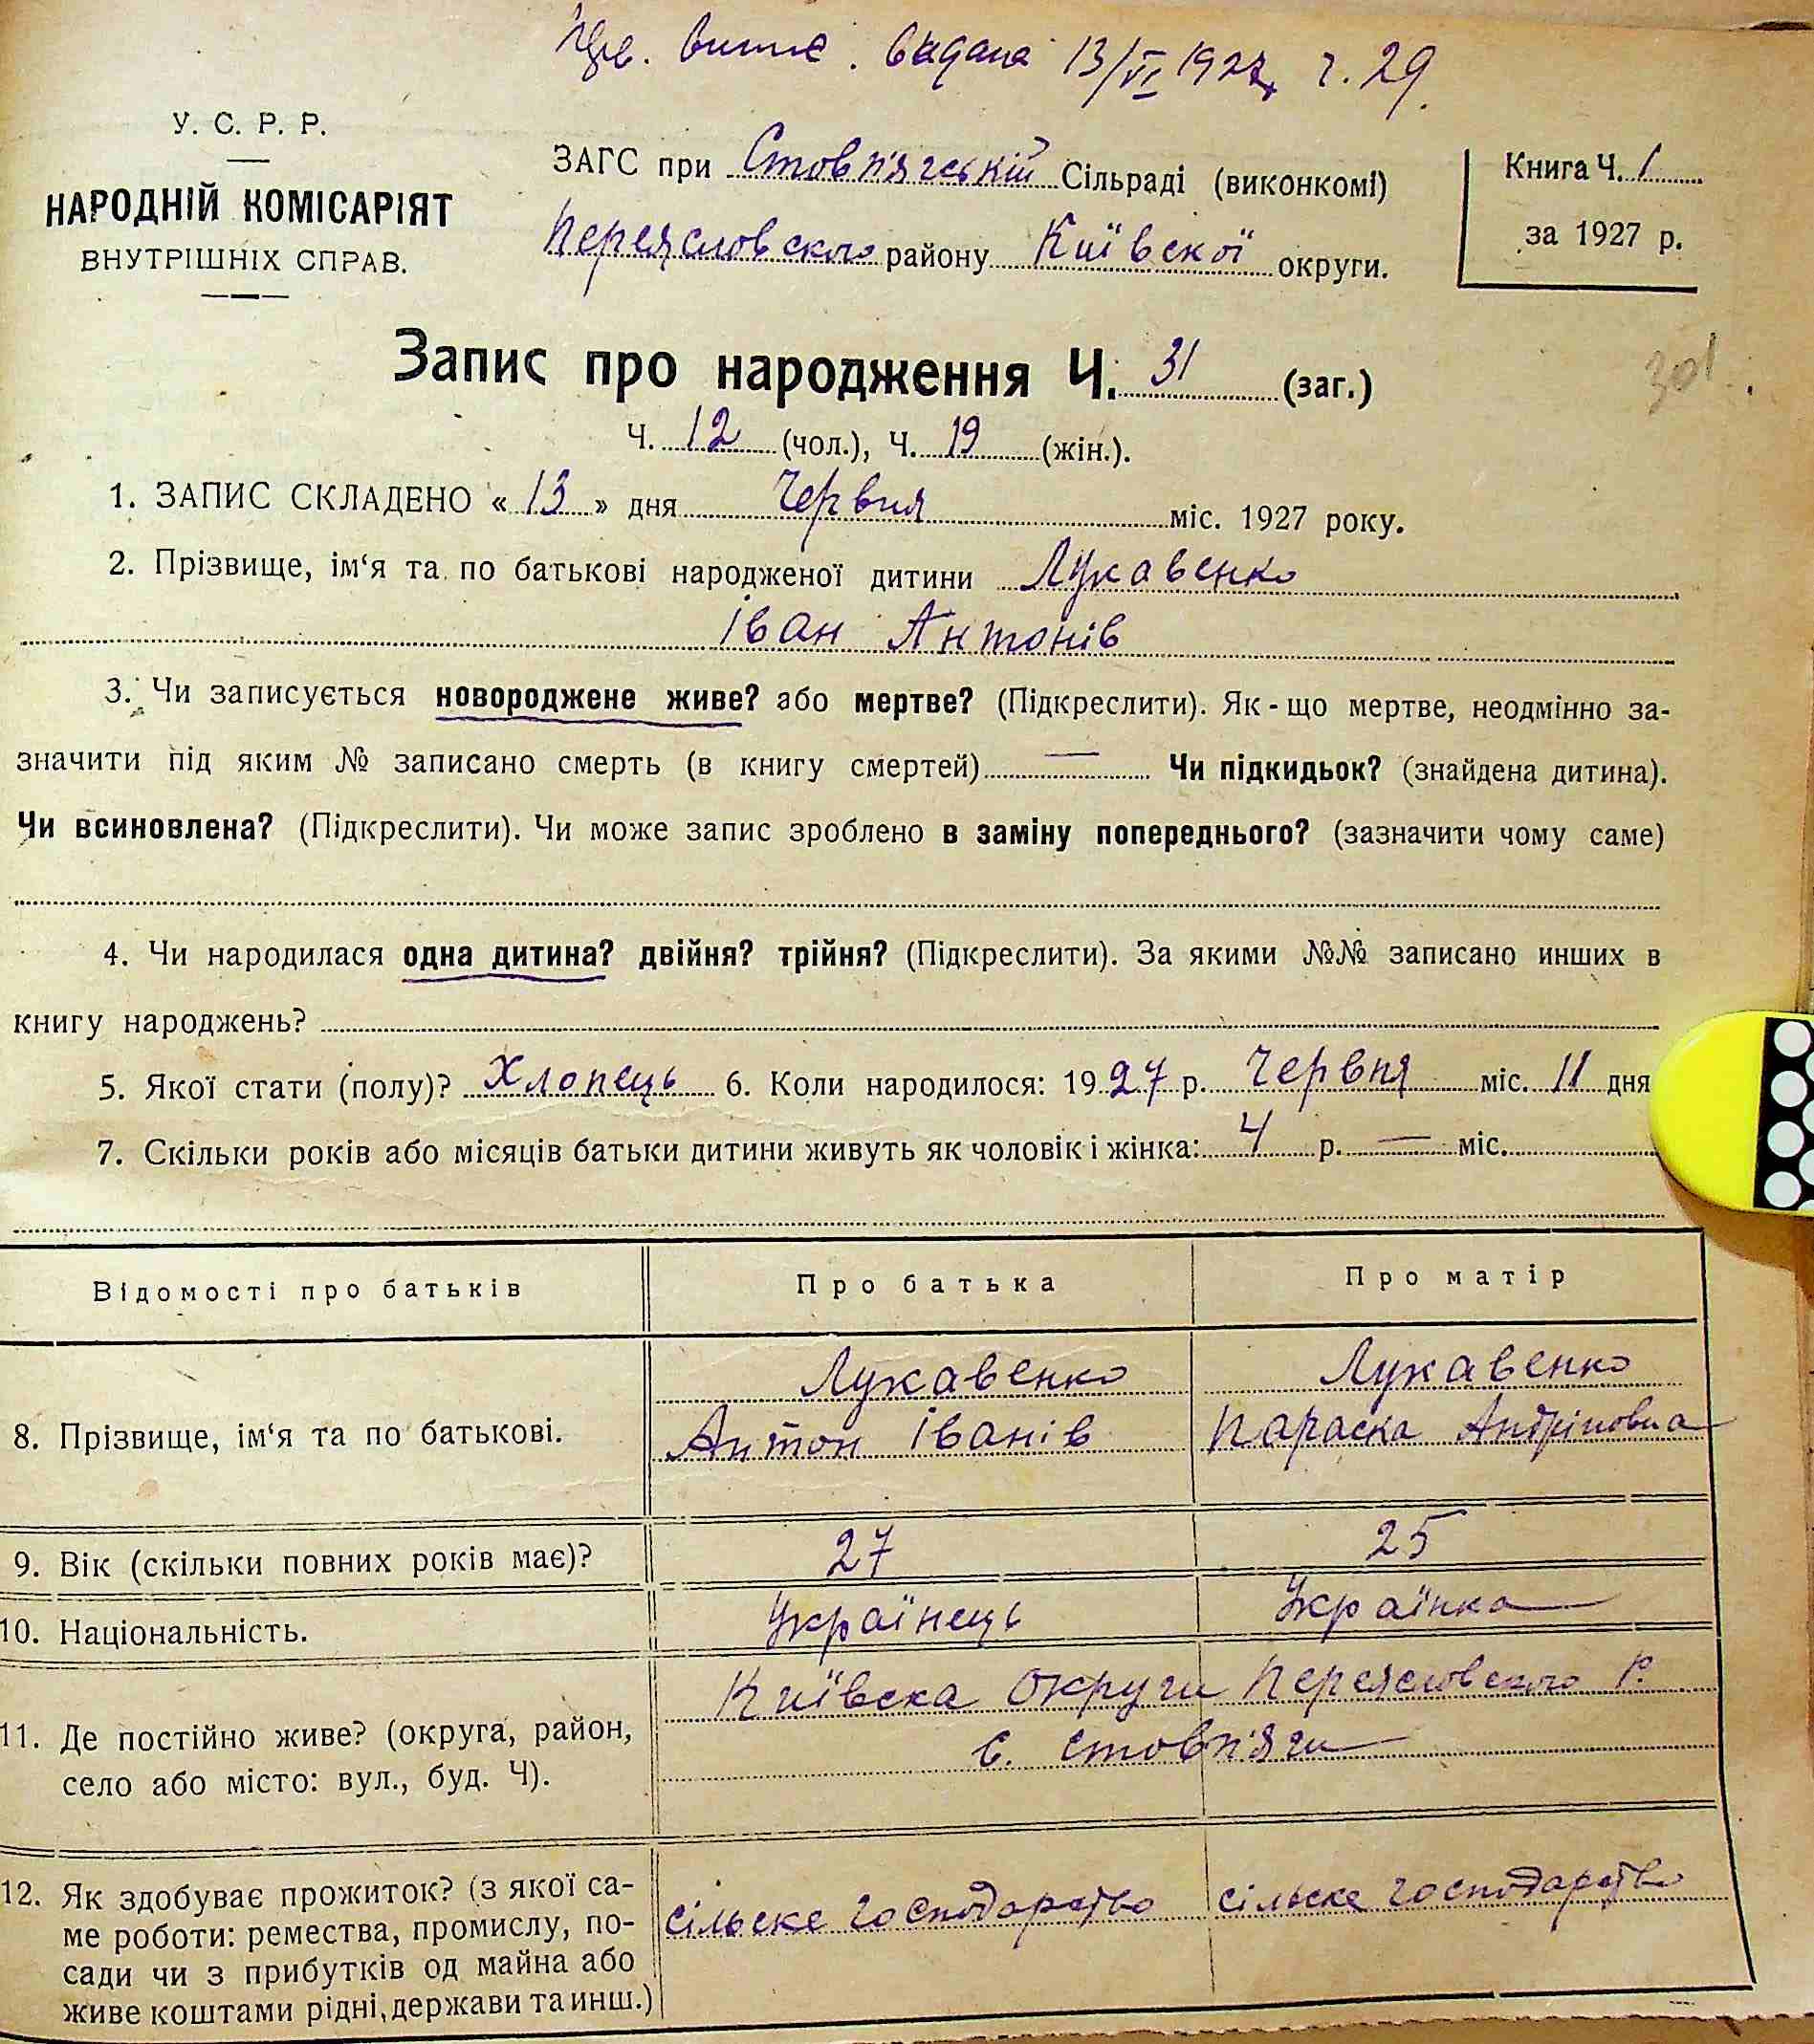 витяг. видана 13/VI 1927 г. 29.
У. С. Р. Р.
НАРОДНІЙ КОМІСАРІЯТ
ВНУТРІШНІХ СПРАВ.
ЗАГС при Стовп'ягській Сільраді (виконкомі)
Переясловского району Київскої округи.
Книга Ч. 1
за 1927 р.
Запис про народження Ч. 31 (заг.)
301
Ч. 12 (чол.), Ч. 19 (жін.).
1. ЗАПИС СКЛАДЕНО «13» дня Червня міс. 1927 року.
2. Прізвище, ім‘я та по батькові народженої дитини Лукавенко
Іван Антонів
3. Чи записується новороджене живе? або мертве? (Підкреслити). Як-що мертве, неодмінно за-
значити під яким № записано смерть (в книгу смертей) — Чи підкидьок? (знайдена дитина).
Чи всиновлена? (Підкреслити). Чи може запис зроблено в заміну попереднього? (зазначити чому саме)
4. Чи народилася одна дитина? двійня? трійня? (Підкреслити). За якими №№ записано инших в
книгу народжень?
5. Якої стати (полу)? Хлопець 6. Коли народилося: 1927 р. Червня міс. 11 дня
7. Скільки років або місяців батьки дитини живуть як чоловік і жінка: 4 р. — міс.
Відомості про батьків Про батька Про матір
Лукавенко Лукавенко
8. Прізвище, ім‘я та по батькові. Антон Іванів Параска Андріповна
9. Вік (скільки повних років має)? 27 25
10. Національність. Українець Українка
Київска Округи Переясловского р.
11. Де постійно живе? (округа, район, с. Стовп'яги
село або місто: вул., буд. Ч).
12. Як здобуває прожиток? (з якої са- сільске господарство сільске господарство
ме роботи: ремества, промислу, по-
сади чи з прибутків од майна або
живе коштами рідні, держави та инш.)